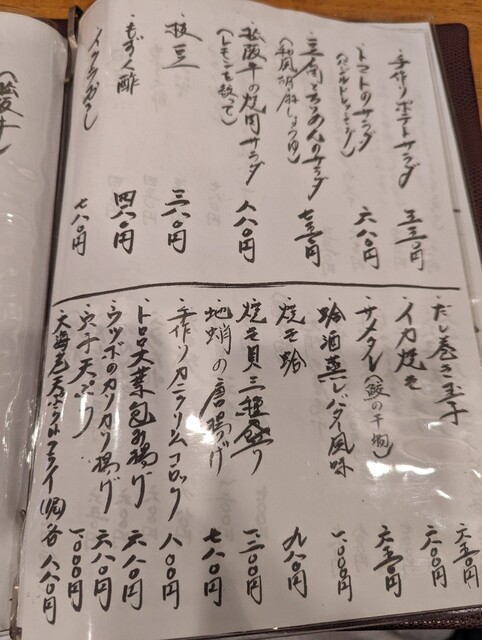 手作りポテトサラダ 五五〇円
トマトのサラダ 六八〇円
三角とろろんのサラダ 七五〇円
(和風胡麻しょうゆ)
松阪牛の焼肉サラダ 八八〇円
(レモンを絞って)
枝豆 三八〇円
もずく酢 四八〇円
イクラおろし 七八〇円
だし巻き玉子 六五〇円
イカ焼き 六〇〇円
サメタレ(鮫の干物) 六五〇円
蛤酒蒸しバター風味 一、〇〇〇円
焼き蛤 九八〇円
焼き貝三種盛り 一、三〇〇円
地蛸の唐揚げ 七八〇円
手作りカニクリームコロッケ 八〇〇円
トロロ大葉包み揚げ 六八〇円
ウツボのカリカリ揚げ 六八〇円
穴子天ぷら 一、〇〇〇円
大海老天ぷらorフライ(1尾)各 八八〇円
(松阪牛